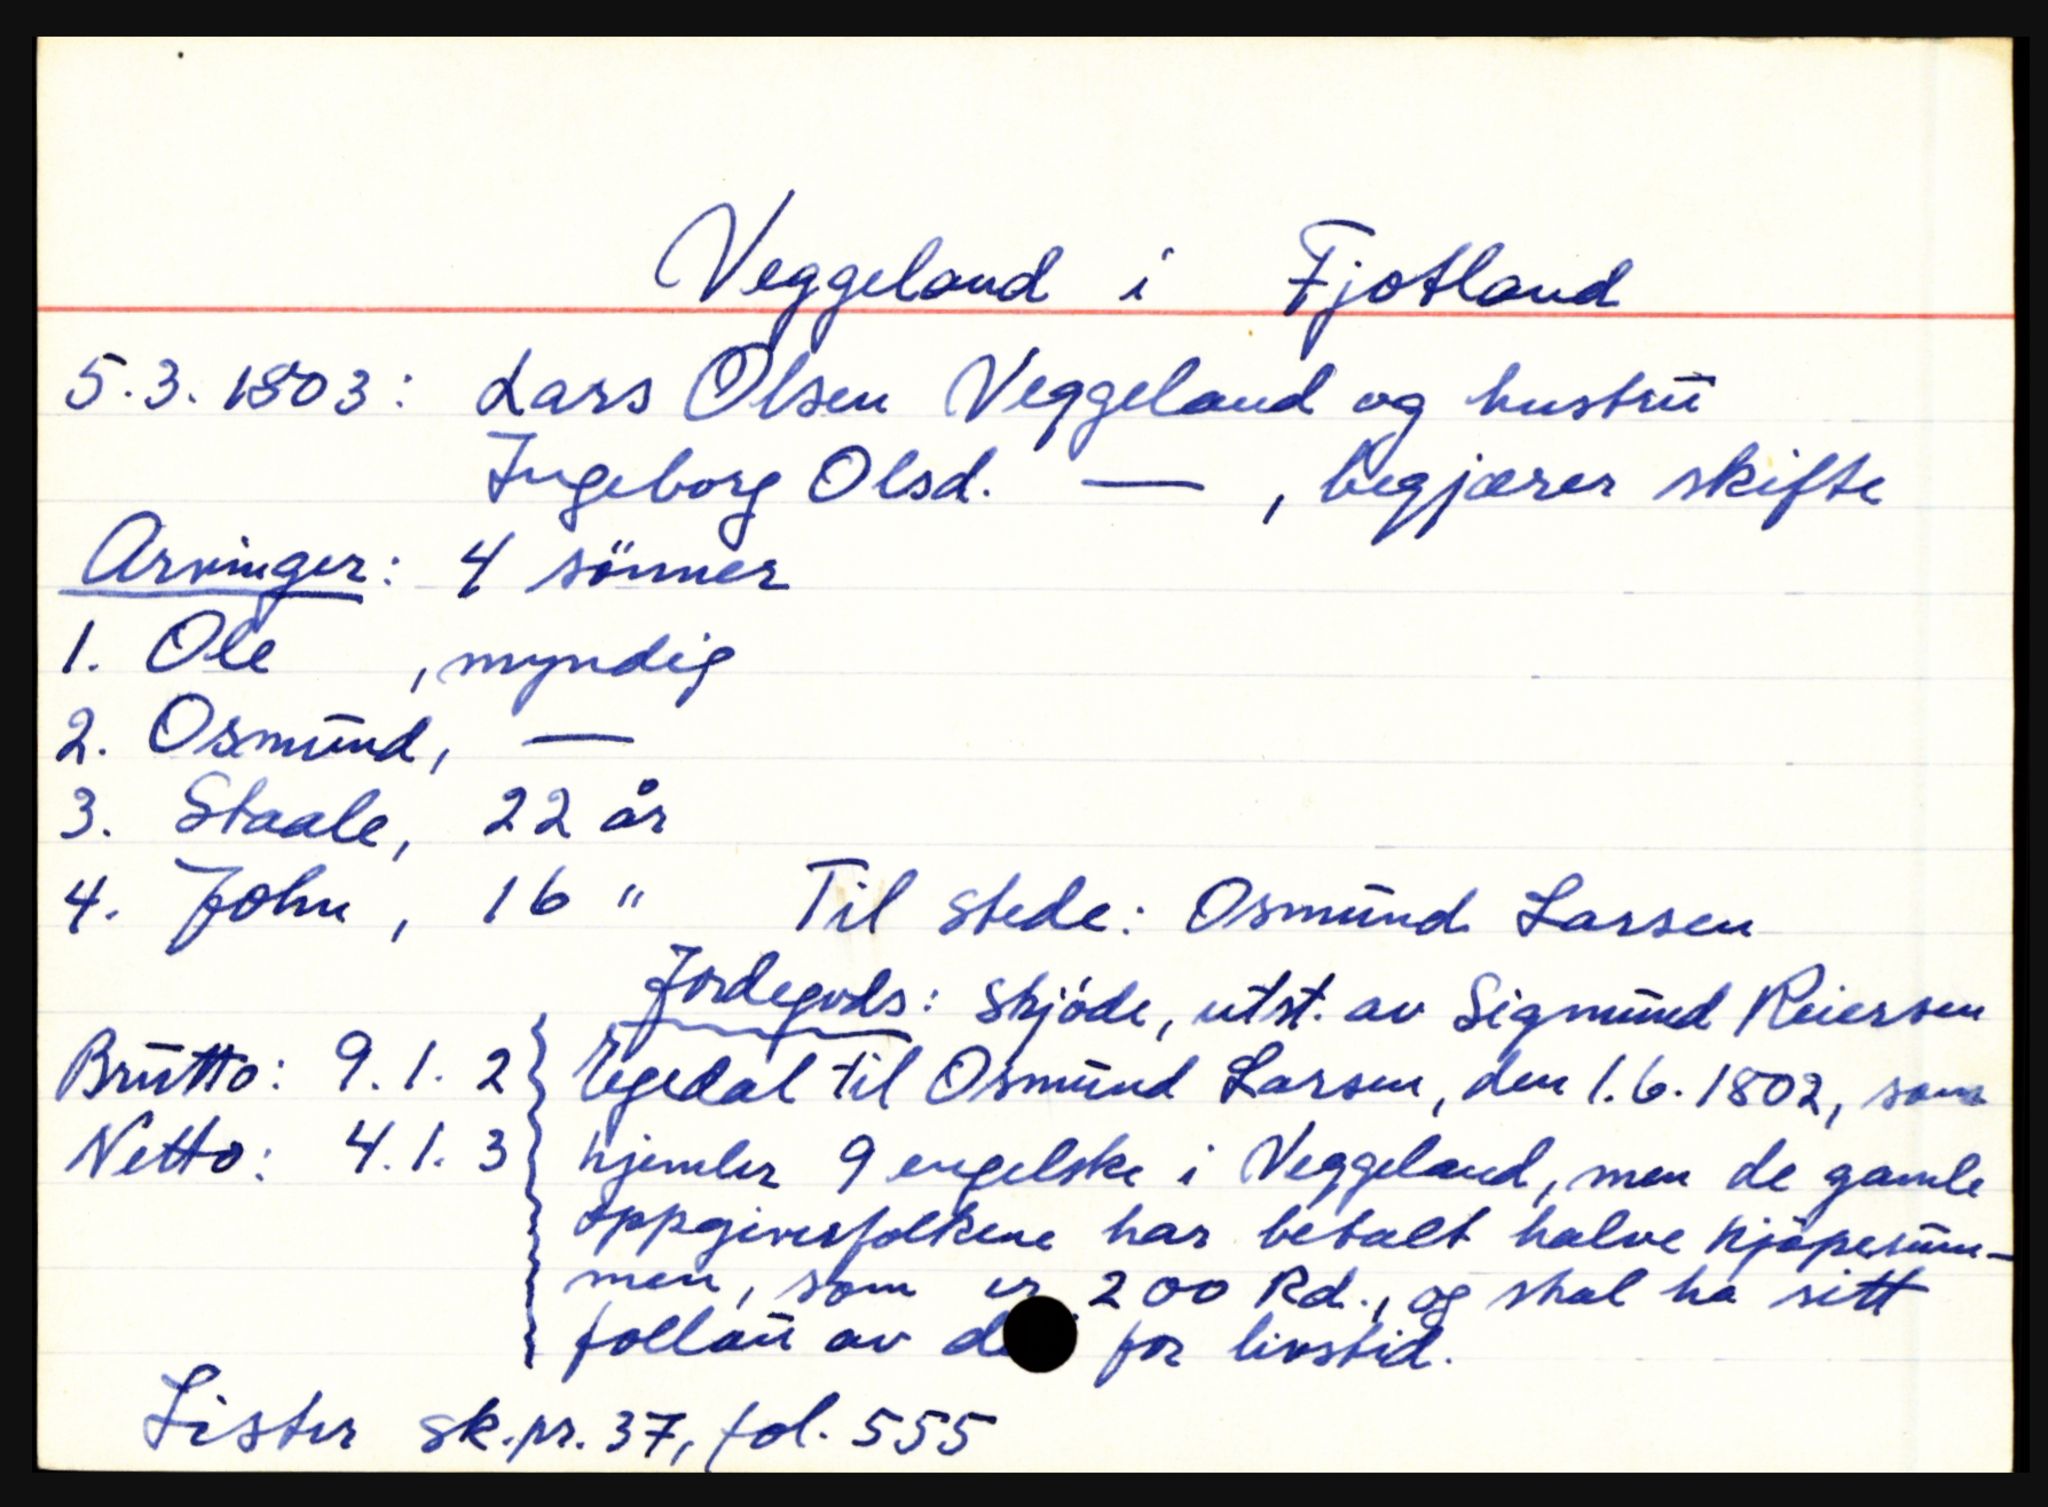 Veggeland i Fjotland
5.3.1803: Lars Olsen Veggeland og hustrū
Ingeborg Olsd. — , begjærer skifte
Arvinger: 4 sönner
1. Ole , myndig
2. Osmūnd, —
3. Staale, 22 år
4. John, 16 " Til stede: Osmūnd Larsen
Jordegods: Skjöde, utst. av Sigmūnd Reiersen
Brūtto: 9.1.2 Egedal til Osmūnd Larsen, den 1.6.1802, som
Netto: 4.1.3 hjemler 9 engelske i Veggeland, men de gamle
oppgivesfolkene har betalt halve kjöpesūm-
men, som er 200 Rd., og skal ha sitt
follaū av for livstid.
Lister sk.pr. 37, fol. 555